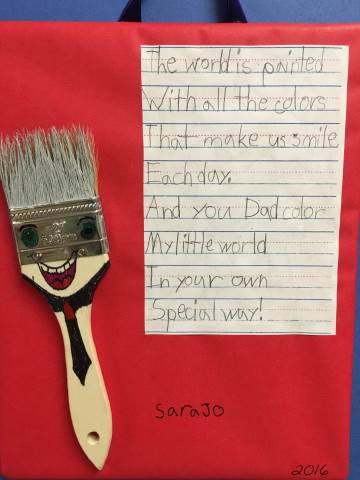 The world is painted
With all the colors
That make us smile
Each day.
And you Dad color
My little world
In your own
Special way!
SaraJo
2016